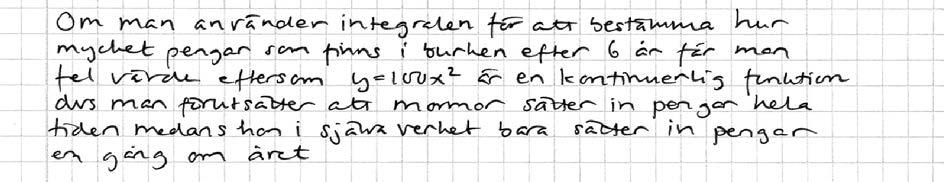 Om man använder integralen för att bestämma hur
mycket pengar som finns i burken efter 6 år får man
fel värde eftersom y=100x² är en kontinuerlig funktion
dvs man förutsätter att mormor sätter in pengar hela
tiden medans hon i själva verket bara sätter in pengar
en gång om året